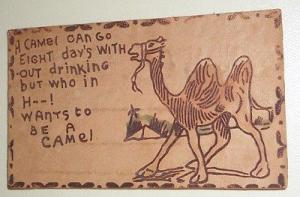 A CAMEL CAN GO
EIGHT DAY'S WITH
-OUT DRINKING
BUT WHO IN
H--!
WANTS TO
BE A
CAMEL